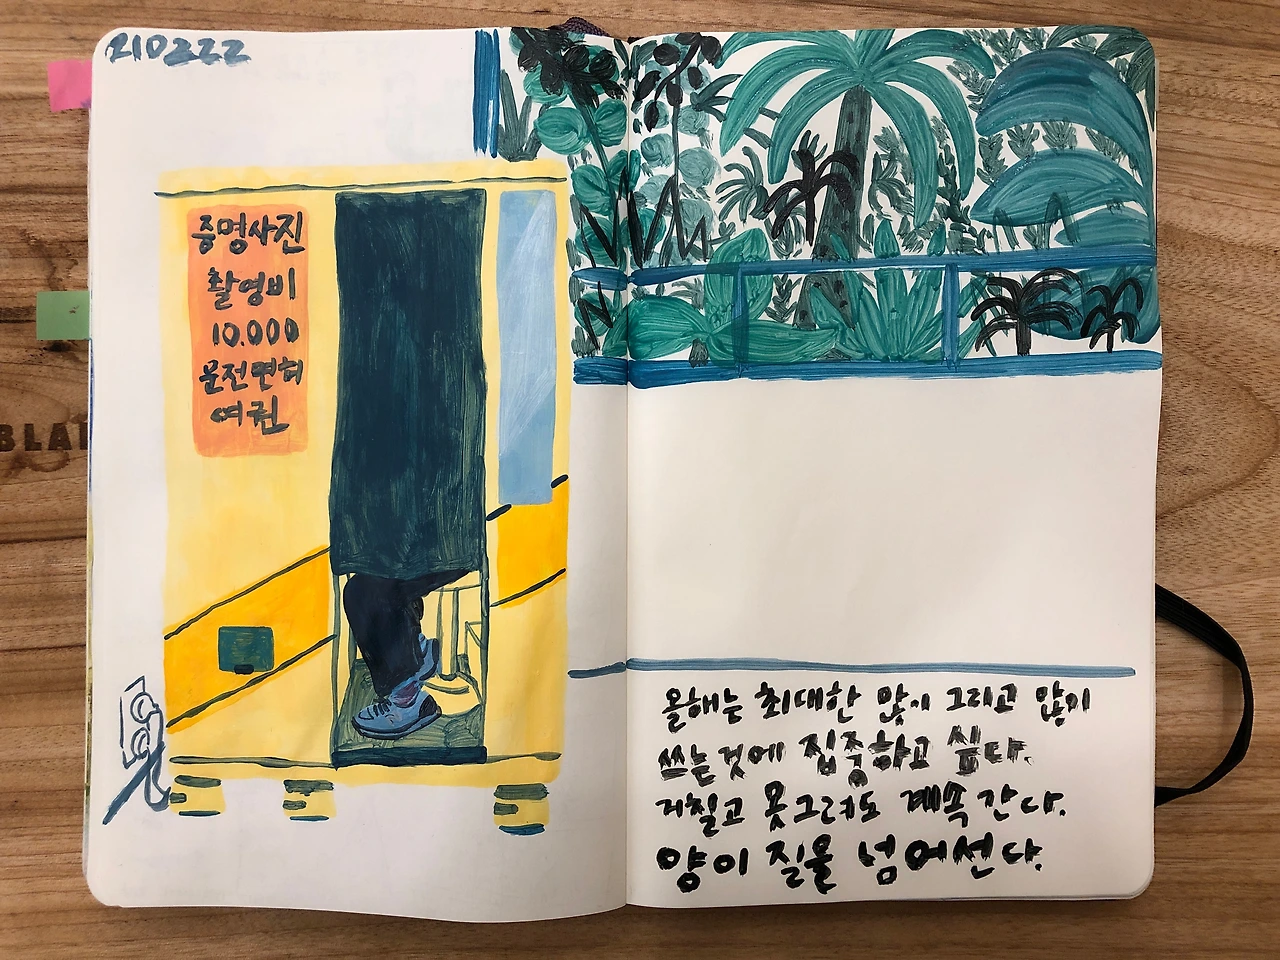 210222
증명사진
촬영비
10.000
운전면허
여권
BLA
올해는 최대한 많이 그리고 많이
쓰는것에 집중하고 싶다.
거칠고 못그려도 계속 간다.
양이 질을 넘어선다.